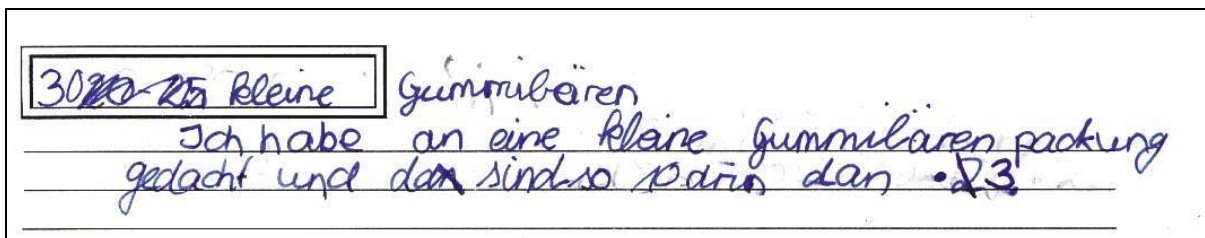 30 kleine Gummibären
Ich habe an eine kleine Gummibärenpackung
gedacht und da sind so 10 drin dan ·3.